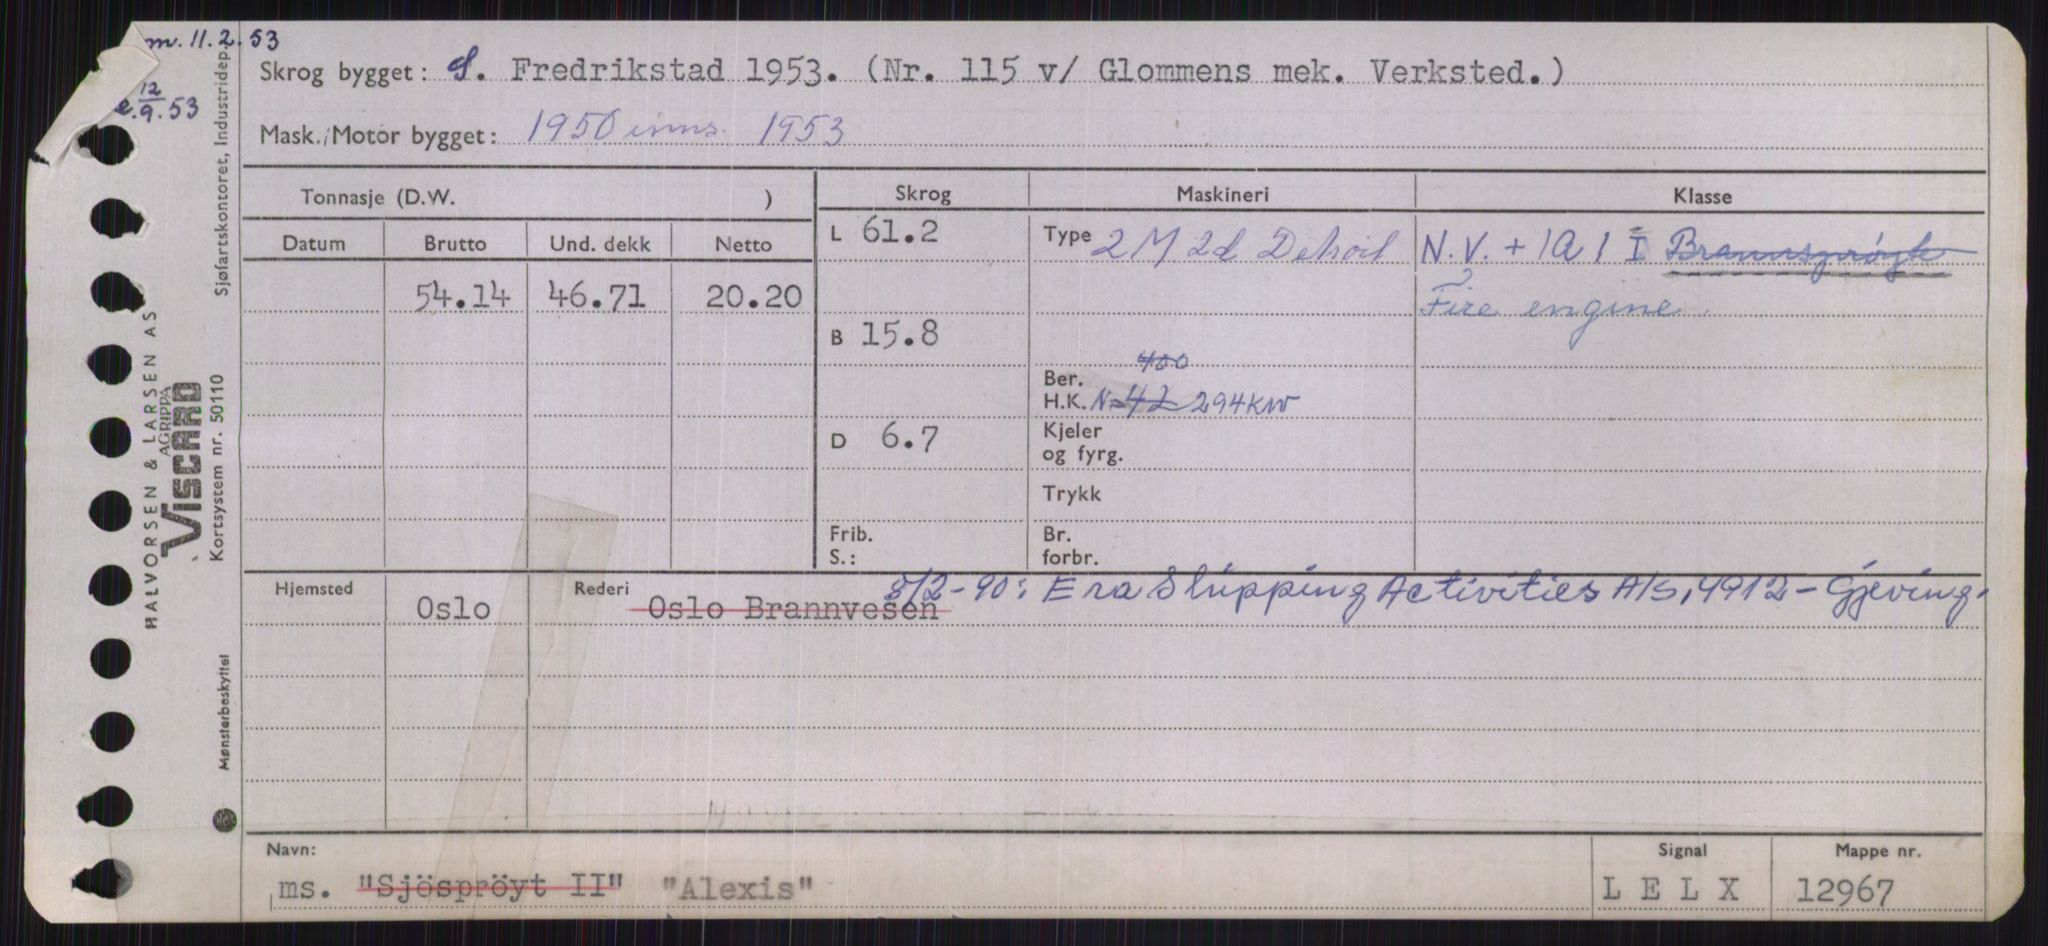 m. 11.2.53
e. 12/9.53
Skrog bygget: S. Fredrikstad 1953. (Nr. 115 v/ Glommens mek. Verksted.)
Mask./Motor bygget: 1950 inns. 1953
Tonnasje (D.W. )
Skrog Maskineri Klasse
Datum Brutto Und. dekk Netto
L 61.2 Type 2 M 2d Detroit N.V. + 1A 1 I Brannsprøyte
54.14 46.71 20.20 Fire engine.
B 15.8
400
Ber.
H.K. N=42 294KW
D 6.7 Kjeler
og fyrg.
Trykk
Frib. Br.
S.: forbr.
Hjemsted Rederi 8/2-90: Era Shipping Activities A/S, 4912 - Gjeving.
Oslo Oslo Brannvesen
Navn: Signal Mappe nr.
ms. "Sjöspröyt II" "Alexis" LELX 12967
HALVORSEN & LARSEN AS
AGRIPPA
VISCARD
Sjøfartskontoret, Industridep.
Kortsystem nr. 50110
Mønsterbeskyttet